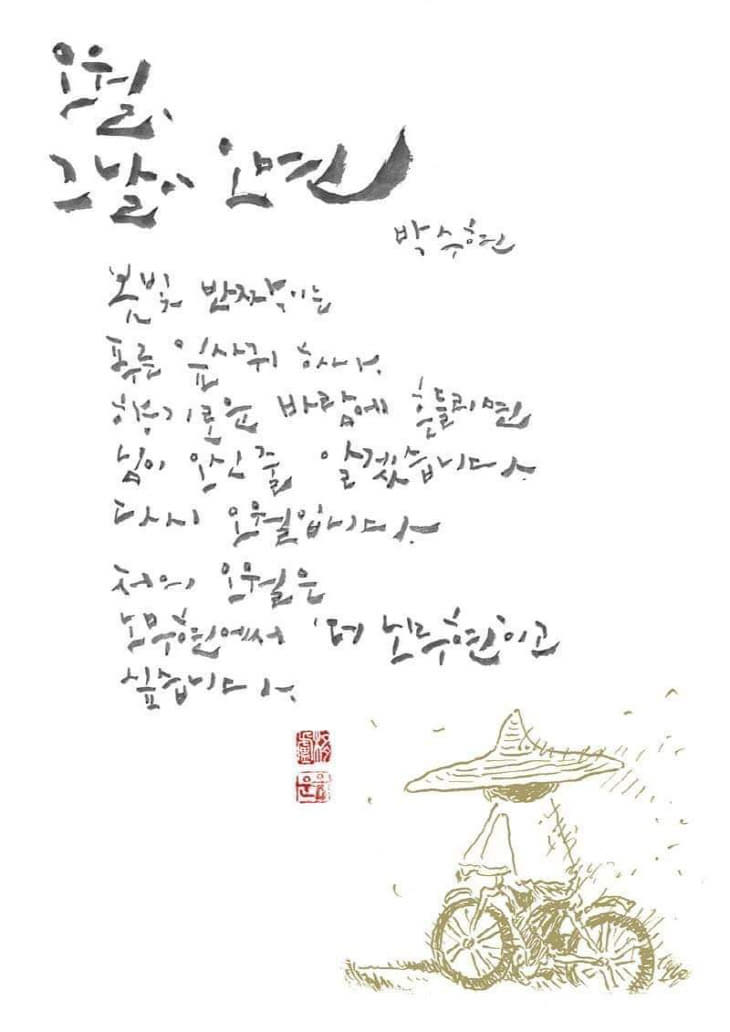 오월,
그날이 오면
박수현
봄빛 반짝이는
푸른 잎사귀 하나,
향기로운 바람에 흔들리면
님이 오신 줄 알겠습니다.
다시 오월입니다.
저의 오월은
노무현에서 '더 노무현'이고
싶습니다.